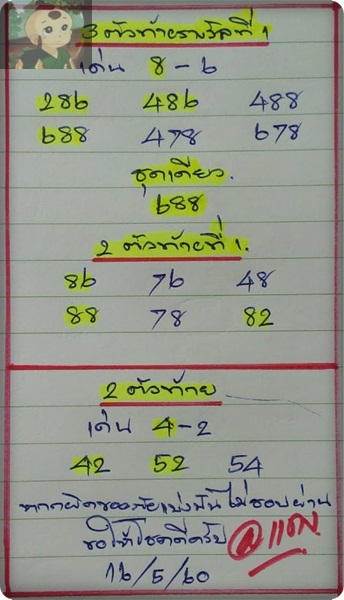 3 ตัวท้ายรางวัลที่ 1
เด่น 8 - 6
286 486 488
688 478 678
ชุดเดียว.
688
2 ตัวท้ายที่ 1.
86 76 48
88 78 82
2 ตัวท้าย
เด่น 4-2
42 52 54
หากผิดขออภัยแบ่งปันไม่ชอบผ่าน
ขอให้โชคดีครับ
16/5/60